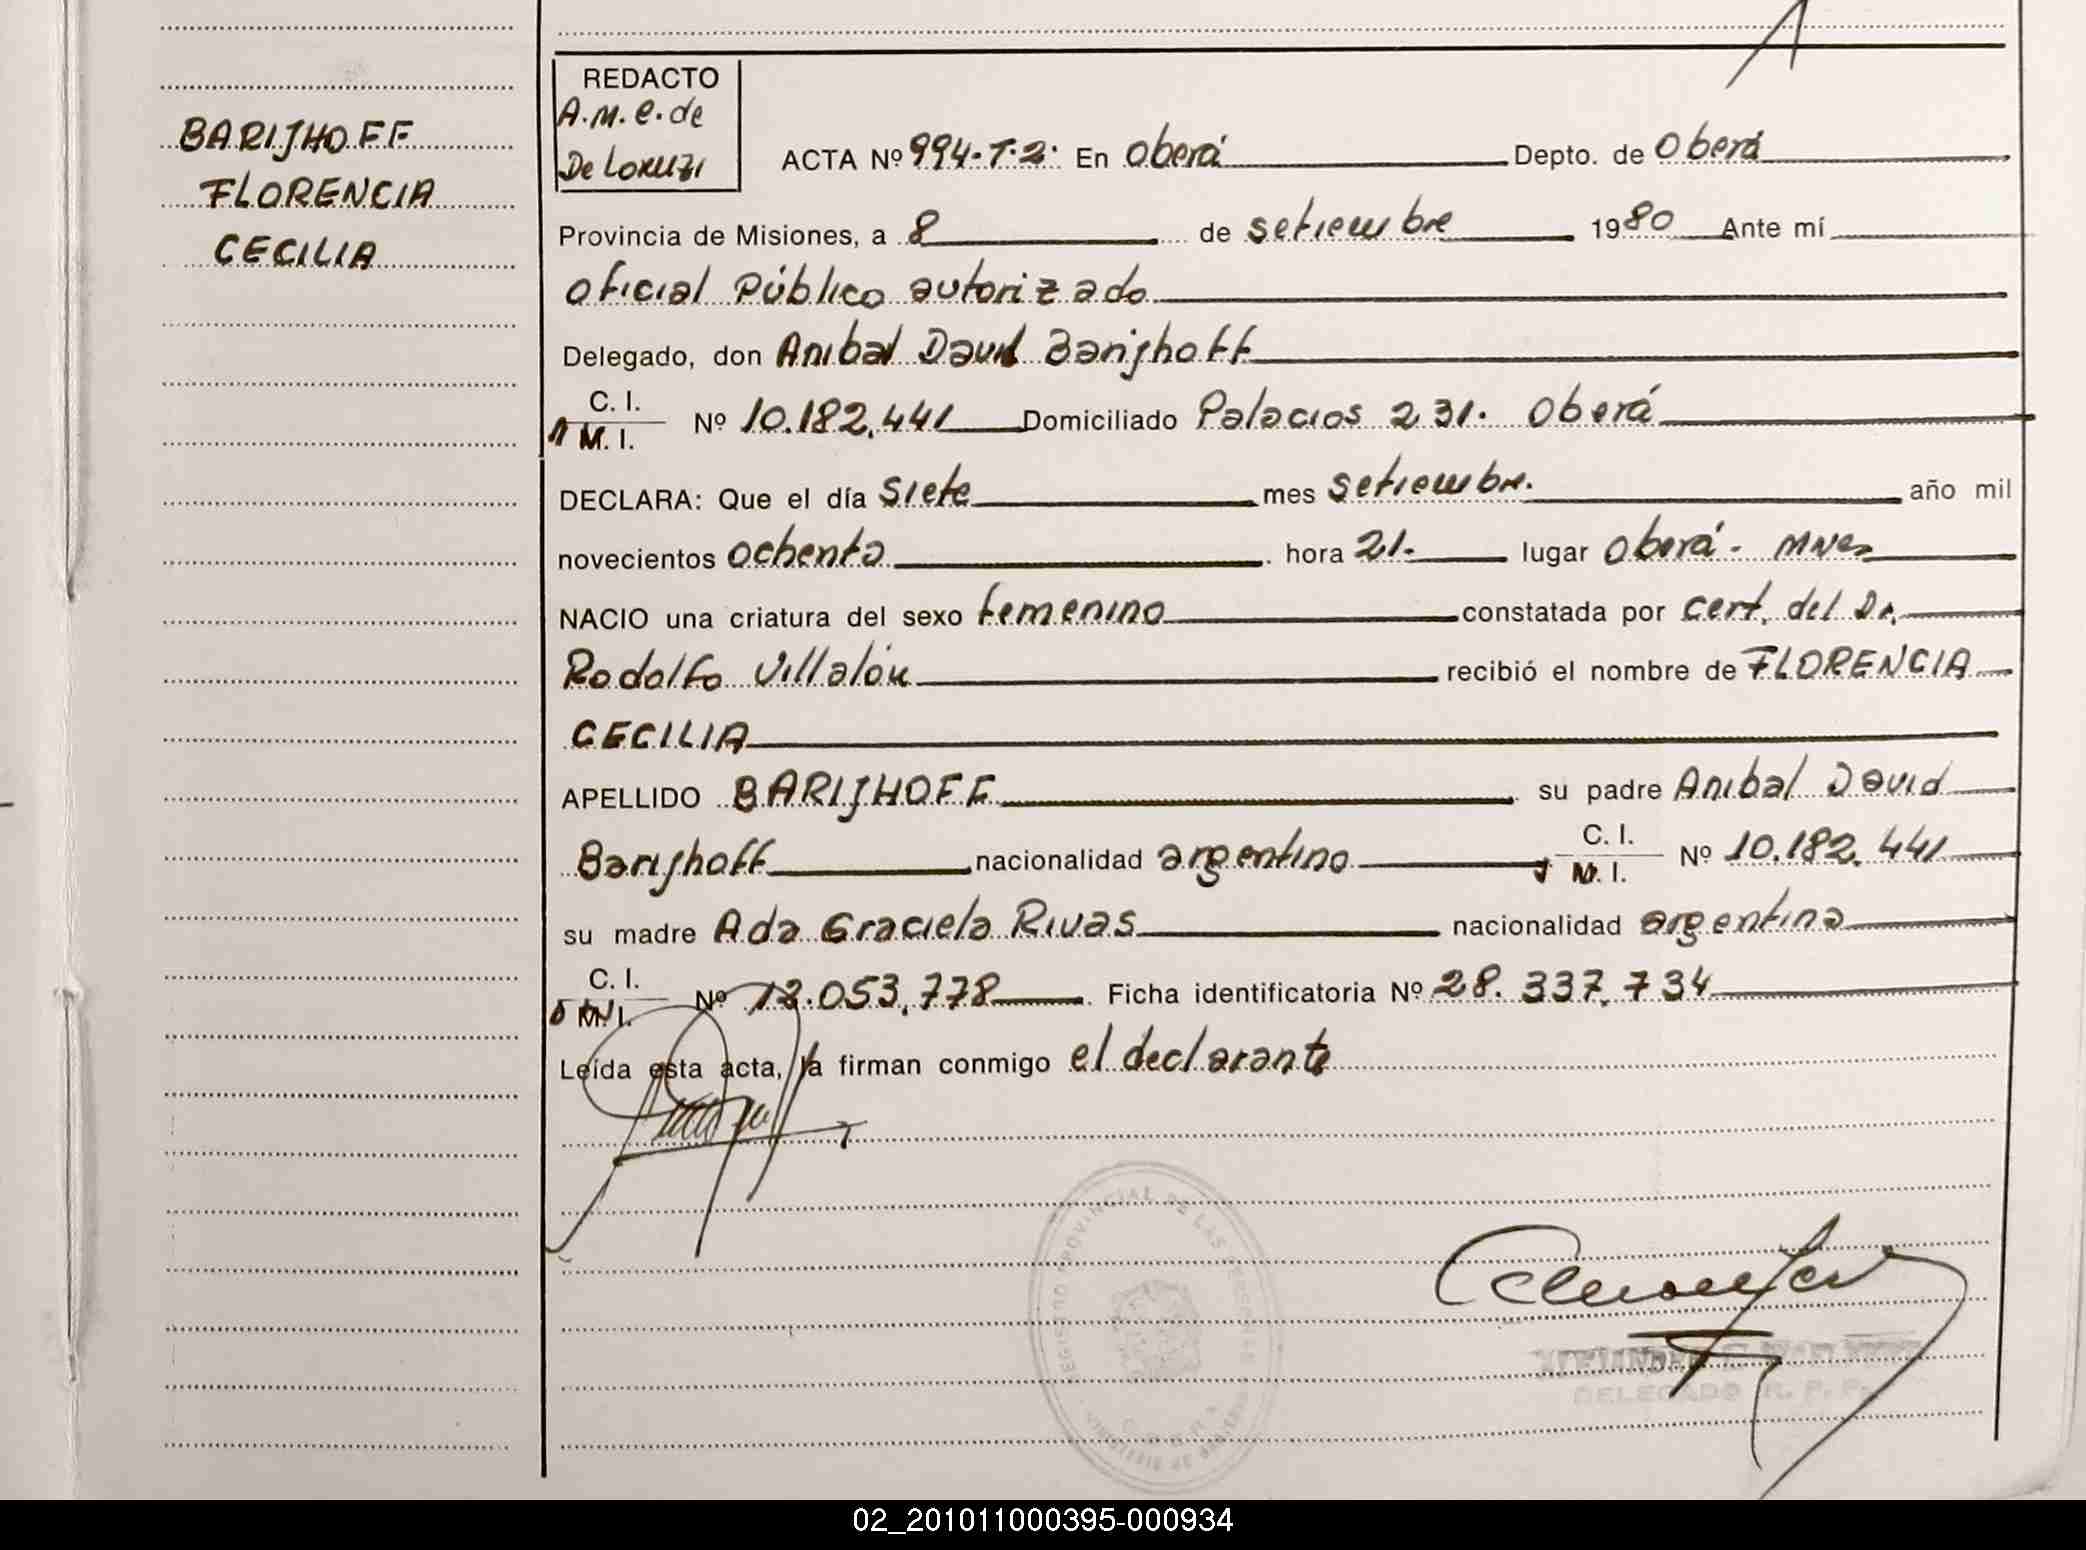 BARIJHOFF
FLORENCIA
CECILIA
REDACTO
A.M.e.de
De
ACTA Nº 994-T.2. En Oberá Depto. de Oberá
Provincia de Misiones, a 8 de setiembre 1980 Ante mí
oficial Público autorizado
Delegado, don Anibal David Barijhoff
C. I.
M. I. Nº 10.182.441 Domiciliado Palacios 231. Oberá
DECLARA: Que el día siete mes setiembre. año mil
novecientos ochenta hora 21. lugar Oberá - Mnes
NACIO una criatura del sexo femenino constatada por cert. del Dr.
Rodolfo Villalón recibió el nombre de FLORENCIA
CECILIA
APELLIDO BARIJHOFF su padre Anibal David
Barijhoff nacionalidad argentino C. I. M. I. Nº 10.182.441
su madre Ada Graciela Rivas nacionalidad argentina
C. I.
M. I. Nº 13.053.778 Ficha identificatoria Nº 28.337.734
Leída esta acta, la firman conmigo el declarante
REGISTRO PROVINCIAL DE LAS PERSONAS
DELEGADO R. P. P.
02_201011000395-000934